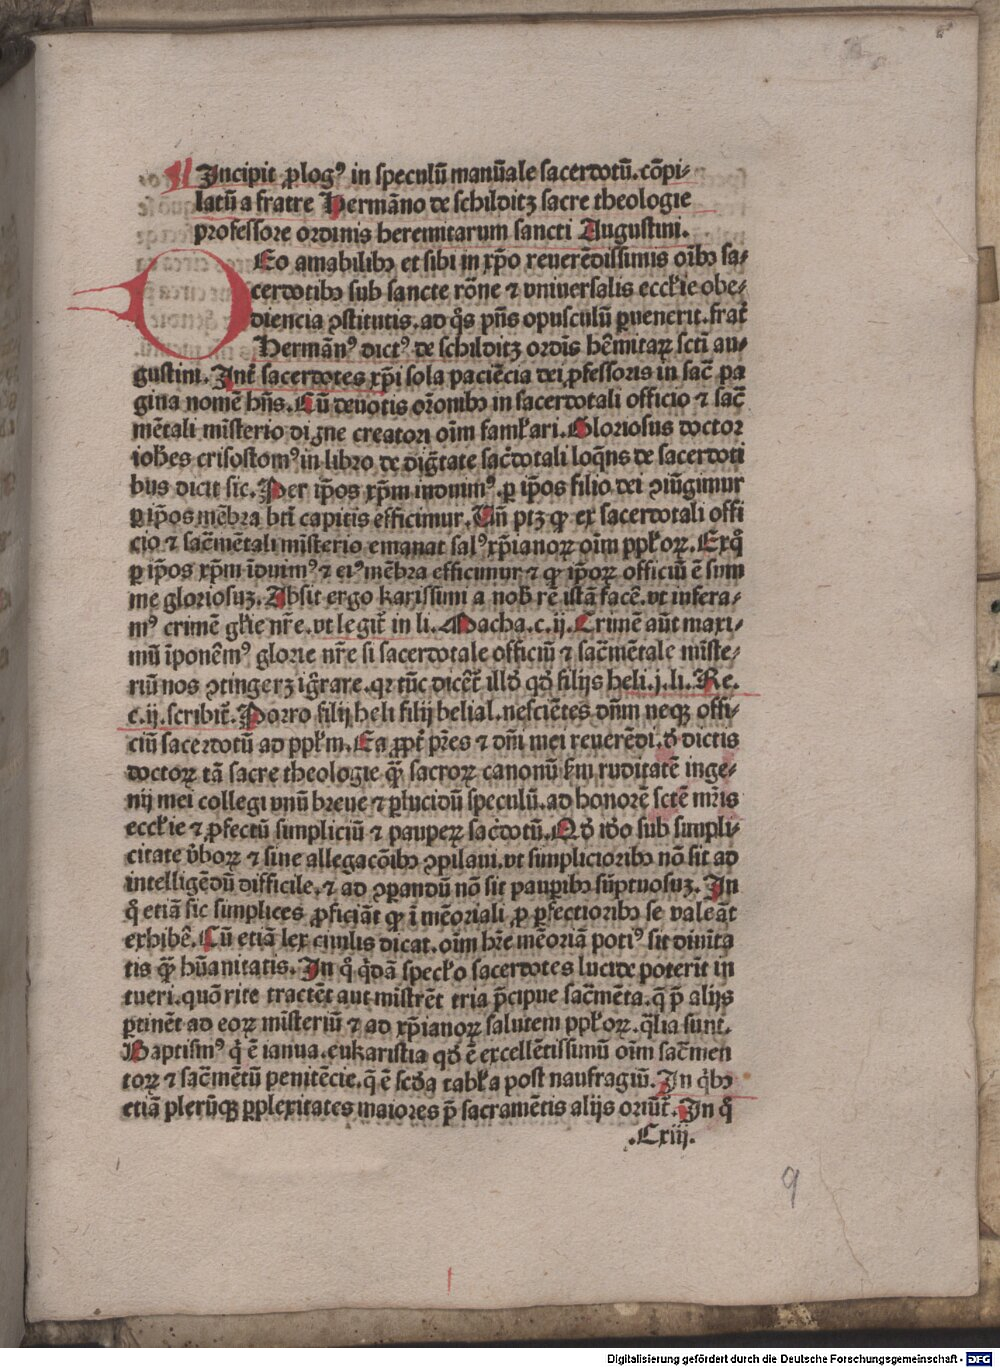 Incipit ꝓlogꝰ in speculū manūale sacerdotū. cōpi-
latū a fratre Hermāno de schilditz sacre theologie
professore ordinis heremitarum sancti Augustini.
DEo amabilibꝰ et sibi in xp̄o reuerēdissimis oībꝰ sa-
cerdotibꝰ sub sancte rōne ⁊ vniuersalis eccl̄ie obe-
diencia ꝯstitutis. ad q̄s pn̄s opusculū ꝑuenerit. frat̄
Hermānꝰ dictꝰ de schilditz ordīs hēmitaꝝ sctī au-
gustini. Int̄ sacerdotes xp̄i sola paciēcia dei ꝓfessoris in sac̄ pa
gina nomē hn̄s. Cū deuotis orōnibꝰ in sacerdotali officio ⁊ sac̄
mētali mīsterio digne creatori oīm faml̄ari. Gloriosus doctor
ioh̄es crisostomꝰ in libro de diḡtate sac̄dotali loq̄ns de sacerdoti
bus dicit sic. Per ip̄os xp̄m induimꝰ. ꝑ ip̄os filio dei ꝯiūgimur
ꝑ ip̄os mēbra bt̄i capitis efficimur. Vn̄ ptꝫ ꝙ ex sacerdotali offi
cio ⁊ sac̄mētali mīsterio emanat salꝰ xp̄ianoꝝ oīm ppl̄oꝝ. Exq̄
ꝑ ip̄os xp̄m īduimꝰ ⁊ eiꝰ mēbra efficimur ⁊ ꝙ ip̄oꝝ officiū ē sum
me gloriosuꝫ. Absit ergo karissimi a nob̄ rē istā facē. vt infera-
mꝰ crimē gl̄ie nr̄e. vt legit̄ in li. Macha. c. ij. Crimē aūt maxi-
mū īponēmꝰ glorie nr̄e si sacerdotale officiū ⁊ sac̄mētale mīste-
riū nos ꝯtingerꝫ iḡrare. qꝛ tūc dicēt̄ illd̄ qd̄ filijs heli. j. li. Re.
c. ij. scribit̄. Porro filij heli filij belial. nesciētes dn̄m neqꝫ offi-
ciū sacerdotū ad ppl̄m. Ea ꝓpt̄ pr̄es ⁊ dn̄i mei reuerēdi. d̄ dictis
doctoꝝ tā sacre theologie q̄̄ sacroꝝ canonū km̄ ruditatē inge-
nij mei collegi vnū breue ⁊ ꝑlucidū speculū. ad honorē sctē mr̄is
eccl̄ie ⁊ ꝓfectū simpliciū ⁊ pauꝑeꝝ sac̄dotū. Qd̄ id̄o sub simpli-
citate v̄boꝝ ⁊ sine allegacōibꝰ ꝯpilaui. vt simplicioribꝰ nō sit ad
intelligēdū difficile. ⁊ ad ꝯꝑandū nō sit pauꝑibꝰ sūptuosuꝫ. In
q̄ etiā sic simplices ꝓficiāt ꝙ ī mēoriali ꝓ ꝑfectioribꝰ se valeāt
exhibē. Cū etiā lex ciuilis dicat. oīm hr̄e mēoriā potiꝰ sit diuīta
tis q̄̄ hūanitatis. In q̄ q̄dā specl̄o sacerdotes lucide poterīt in
tueri. quō rite tractēt aut mīstrēt tria p̄cipue sac̄mēta. q̄ p̄ alijs
ꝑtinēt ad eoꝝ mīsteriū ⁊ ad xp̄ianoꝝ salutem ppl̄oꝝ. q̄lia sunt.
Baptismꝰ q̄ ē ianua. eukaristia qd̄ ē excellētissimū oīm sac̄men
toꝝ ⁊ sac̄mētū penitēcie. q̄ ē scd̄a tabl̄a post naufragiū. In q̄bꝰ
etiā plerūqꝫ ꝑplexitates maiores p̄ sacramētis alijs oriūt̄. In q̄
.Cxiij.
9
Digitalisierung gefördert durch die Deutsche Forschungsgemeinschaft - DFG